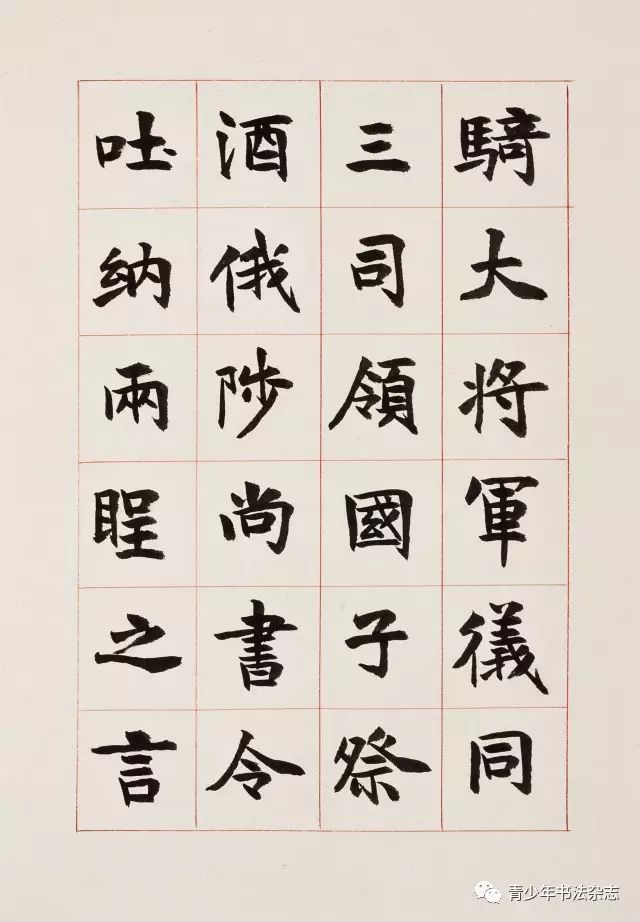 騎大將軍儀同
三司領國子祭
酒俄陟尚書令
吐納兩眰之言
青少年书法杂志